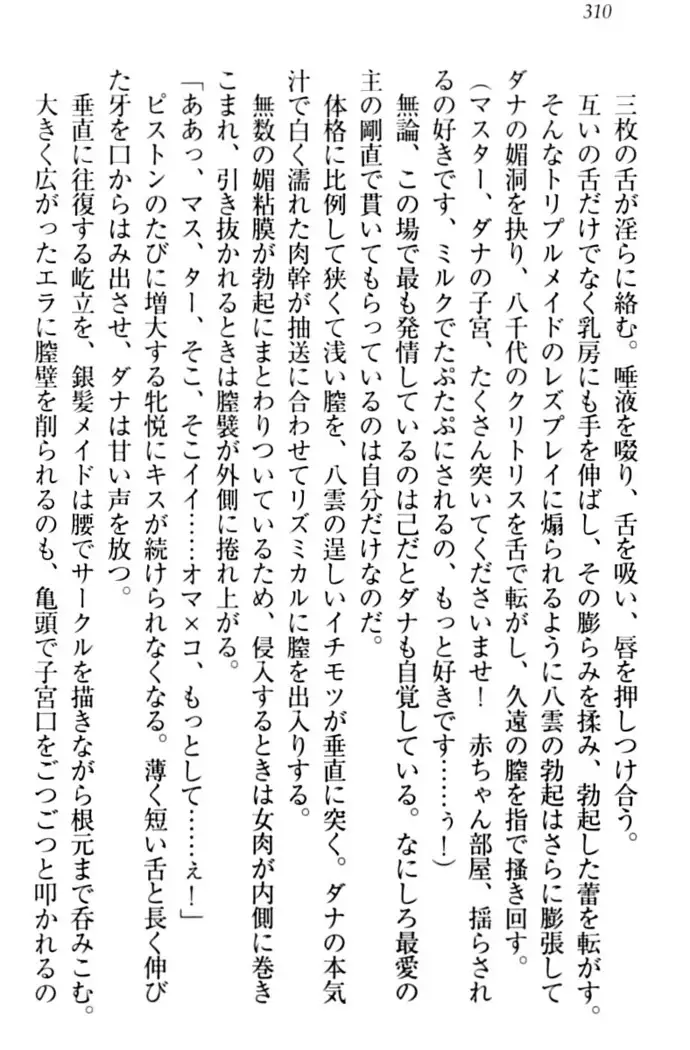 310
三枚の舌が淫らに絡む。唾液を啜り、舌を吸い、唇を押しつけ合う。
互いの舌だけでなく乳房にも手を伸ばし、その膨らみを揉み、勃起した蕾を転がす。
そんなトリプルメイドのレズプレイに煽られるように八雲の勃起はさらに膨張して
ダナの媚洞を抉り、八千代のクリトリスを舌で転がし、久遠の膣を指で掻き回す。
（マスター、ダナの子宮、たくさん突いてくださいませ！　赤ちゃん部屋、揺らされ
るの好きです、ミルクでたぷたぷにされるの、もっと好きです……ぅ！）
無論、この場で最も発情しているのは己だとダナも自覚している。なにしろ最愛の
主の剛直で貫いてもらっているのは自分だけなのだ。
体格に比例して狭くて浅い膣を、八雲の逞しいイチモツが垂直に突く。ダナの本気
汁で白く濡れた肉幹が抽送に合わせてリズミカルに膣を出入りする。
無数の媚粘膜が勃起にまとわりついているため、侵入するときは女肉が内側に巻き
こまれ、引き抜かれるときは膣襞が外側に捲れ上がる。
「ああっ、マス、ター、そこ、そこイイ……オマ×コ、もっとして……ぇ！」
ピストンのたびに増大する牝悦にキスが続けられなくなる。薄く短い舌と長く伸び
た牙を口からはみ出させ、ダナは甘い声を放つ。
垂直に往復する屹立を、銀髪メイドは腰でサークルを描きながら根元まで呑みこむ。
大きく広がったエラに膣壁を削られるのも、亀頭で子宮口をごつごつと叩かれるの